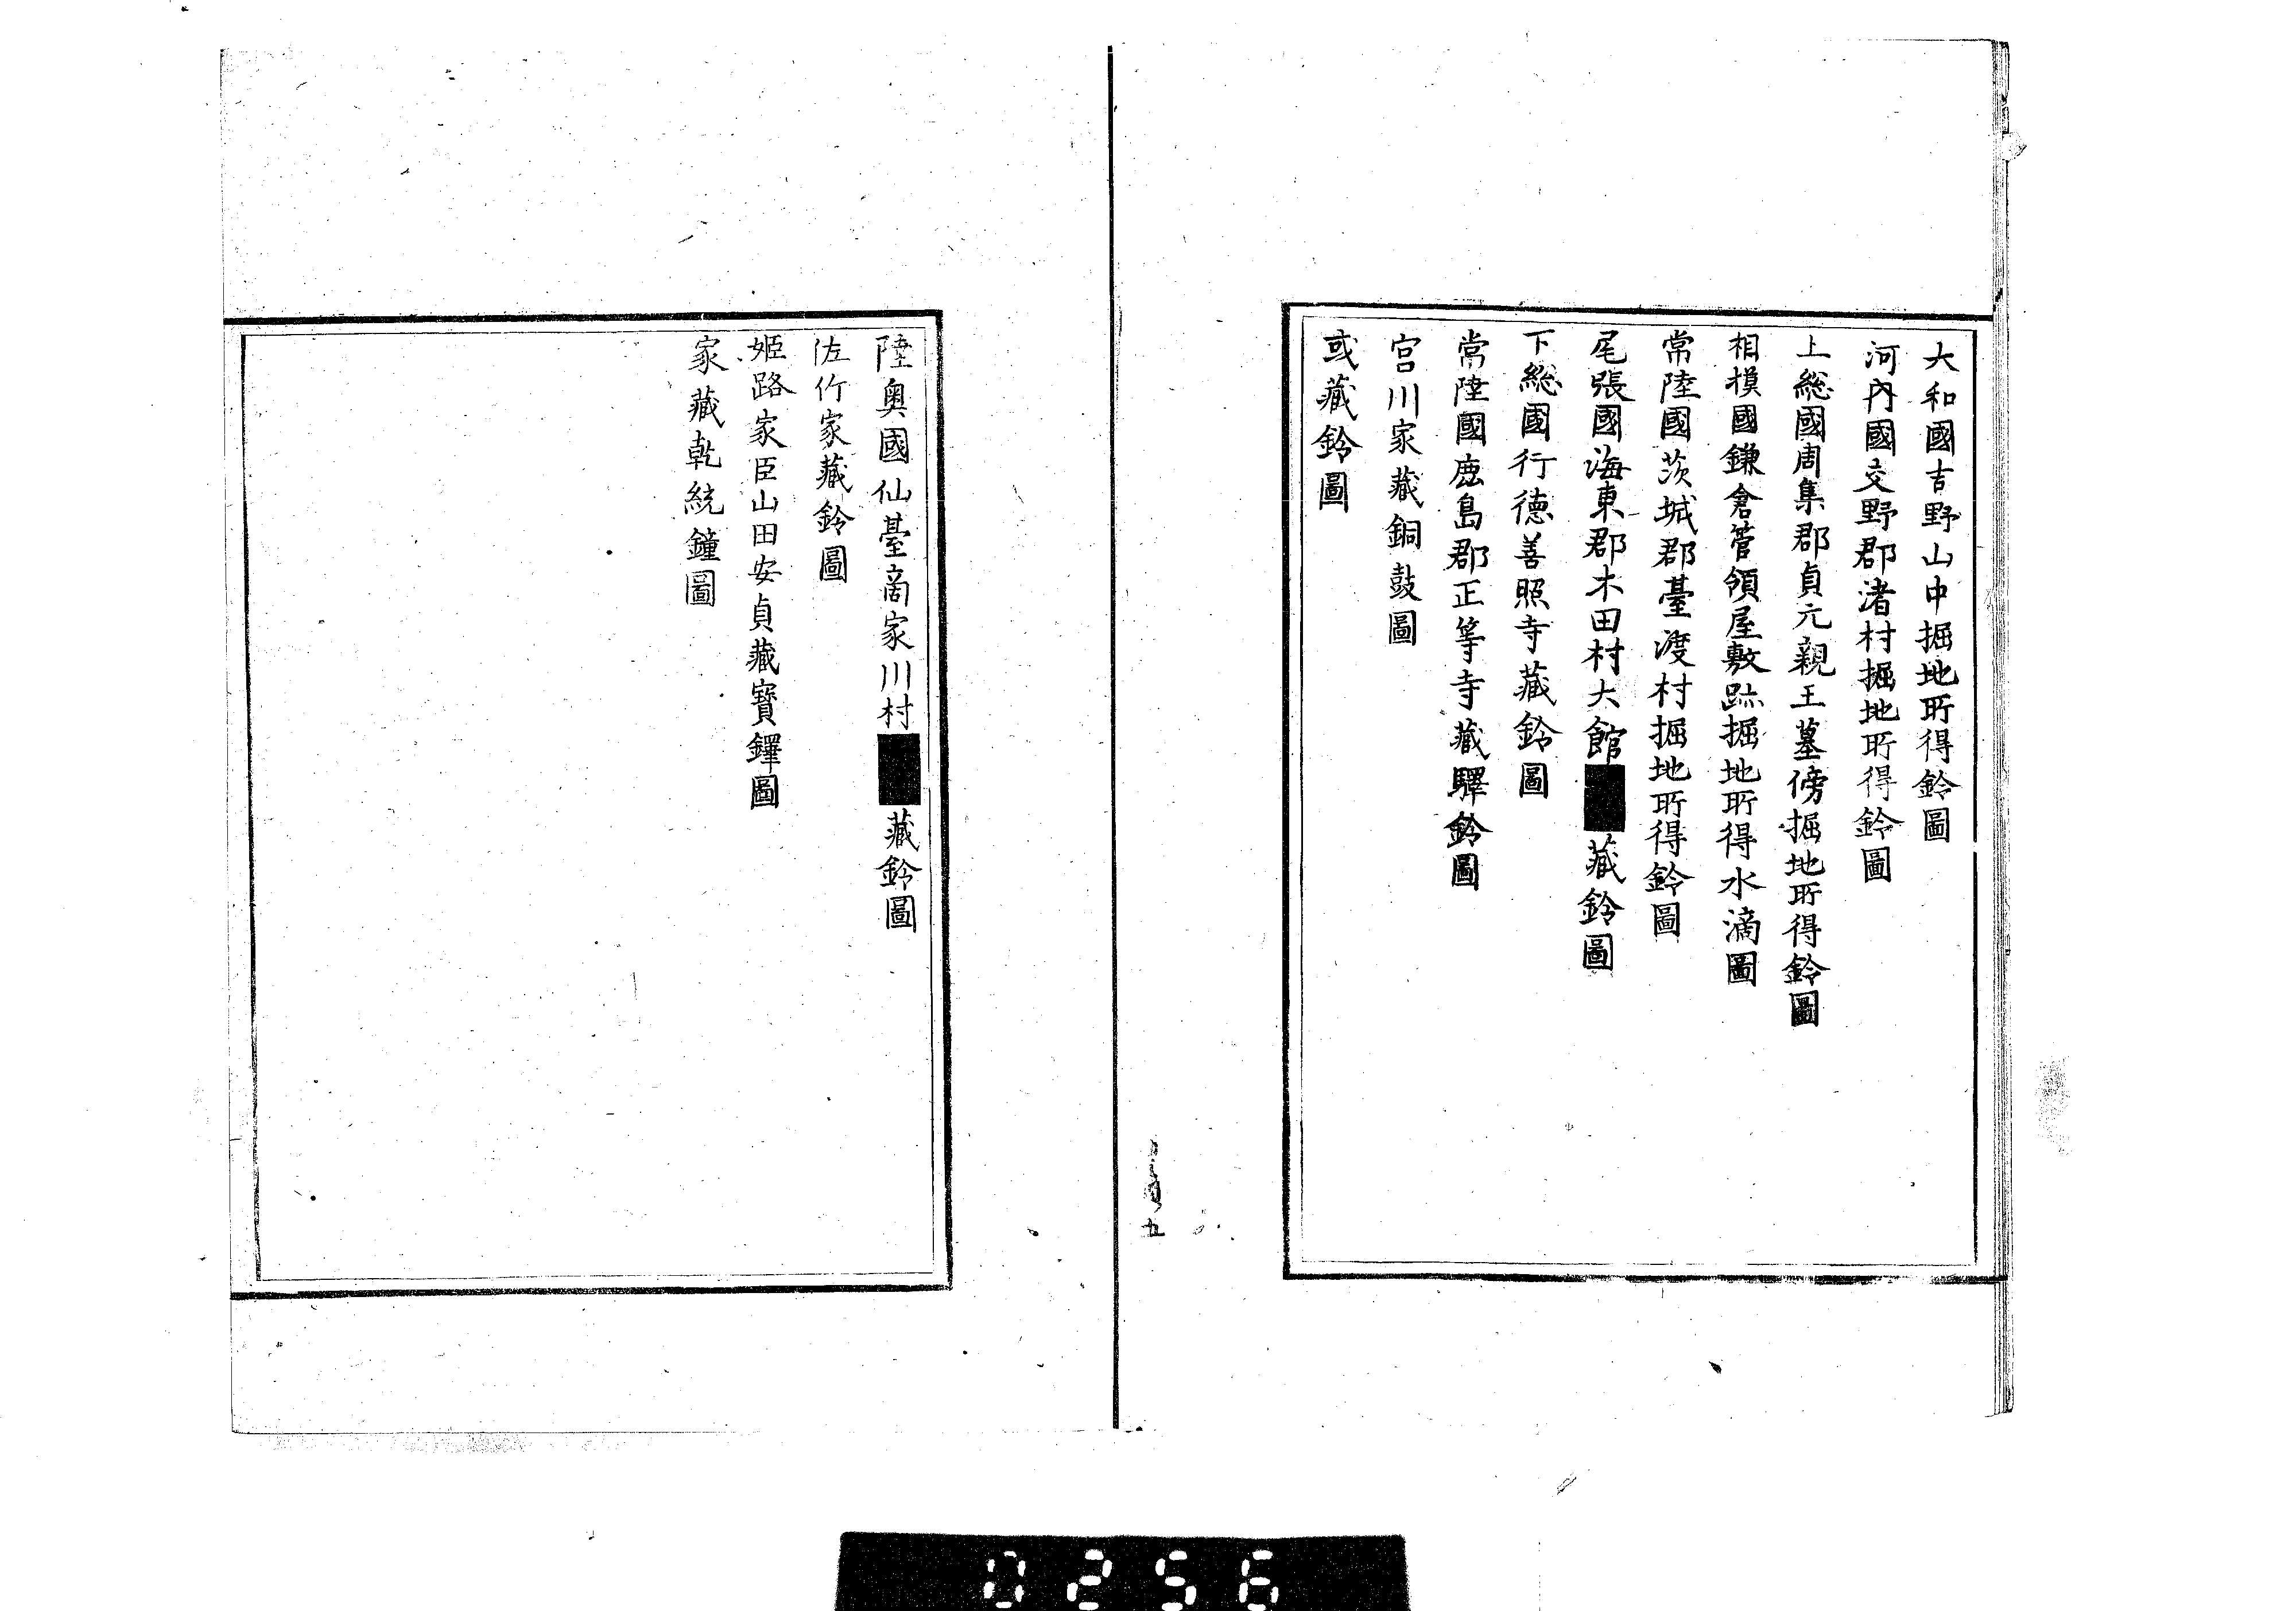 大和國吉野山中掘地所得鈴圖
河內國交野郡渚村掘地所得鈴圖
上總國周集郡貞元親王墓傍掘地所得鈴圖
相摸國鎌倉管領屋敷跡掘地所得水滴圖
常陸國茨城郡臺渡村掘地所得鈴圖
尾張國海東郡木田村大館■藏鈴圖
下總國行德善照寺藏鈴圖
常陸國鹿島郡正等寺藏驛鈴圖
宮川家藏銅鼓圖
或藏鈴圖
陸奧國仙臺商家川村■藏鈴圖
佐竹家藏鈴圖
姬路家臣山田安貞藏寶鐸圖
家藏乾統鐘圖
0256